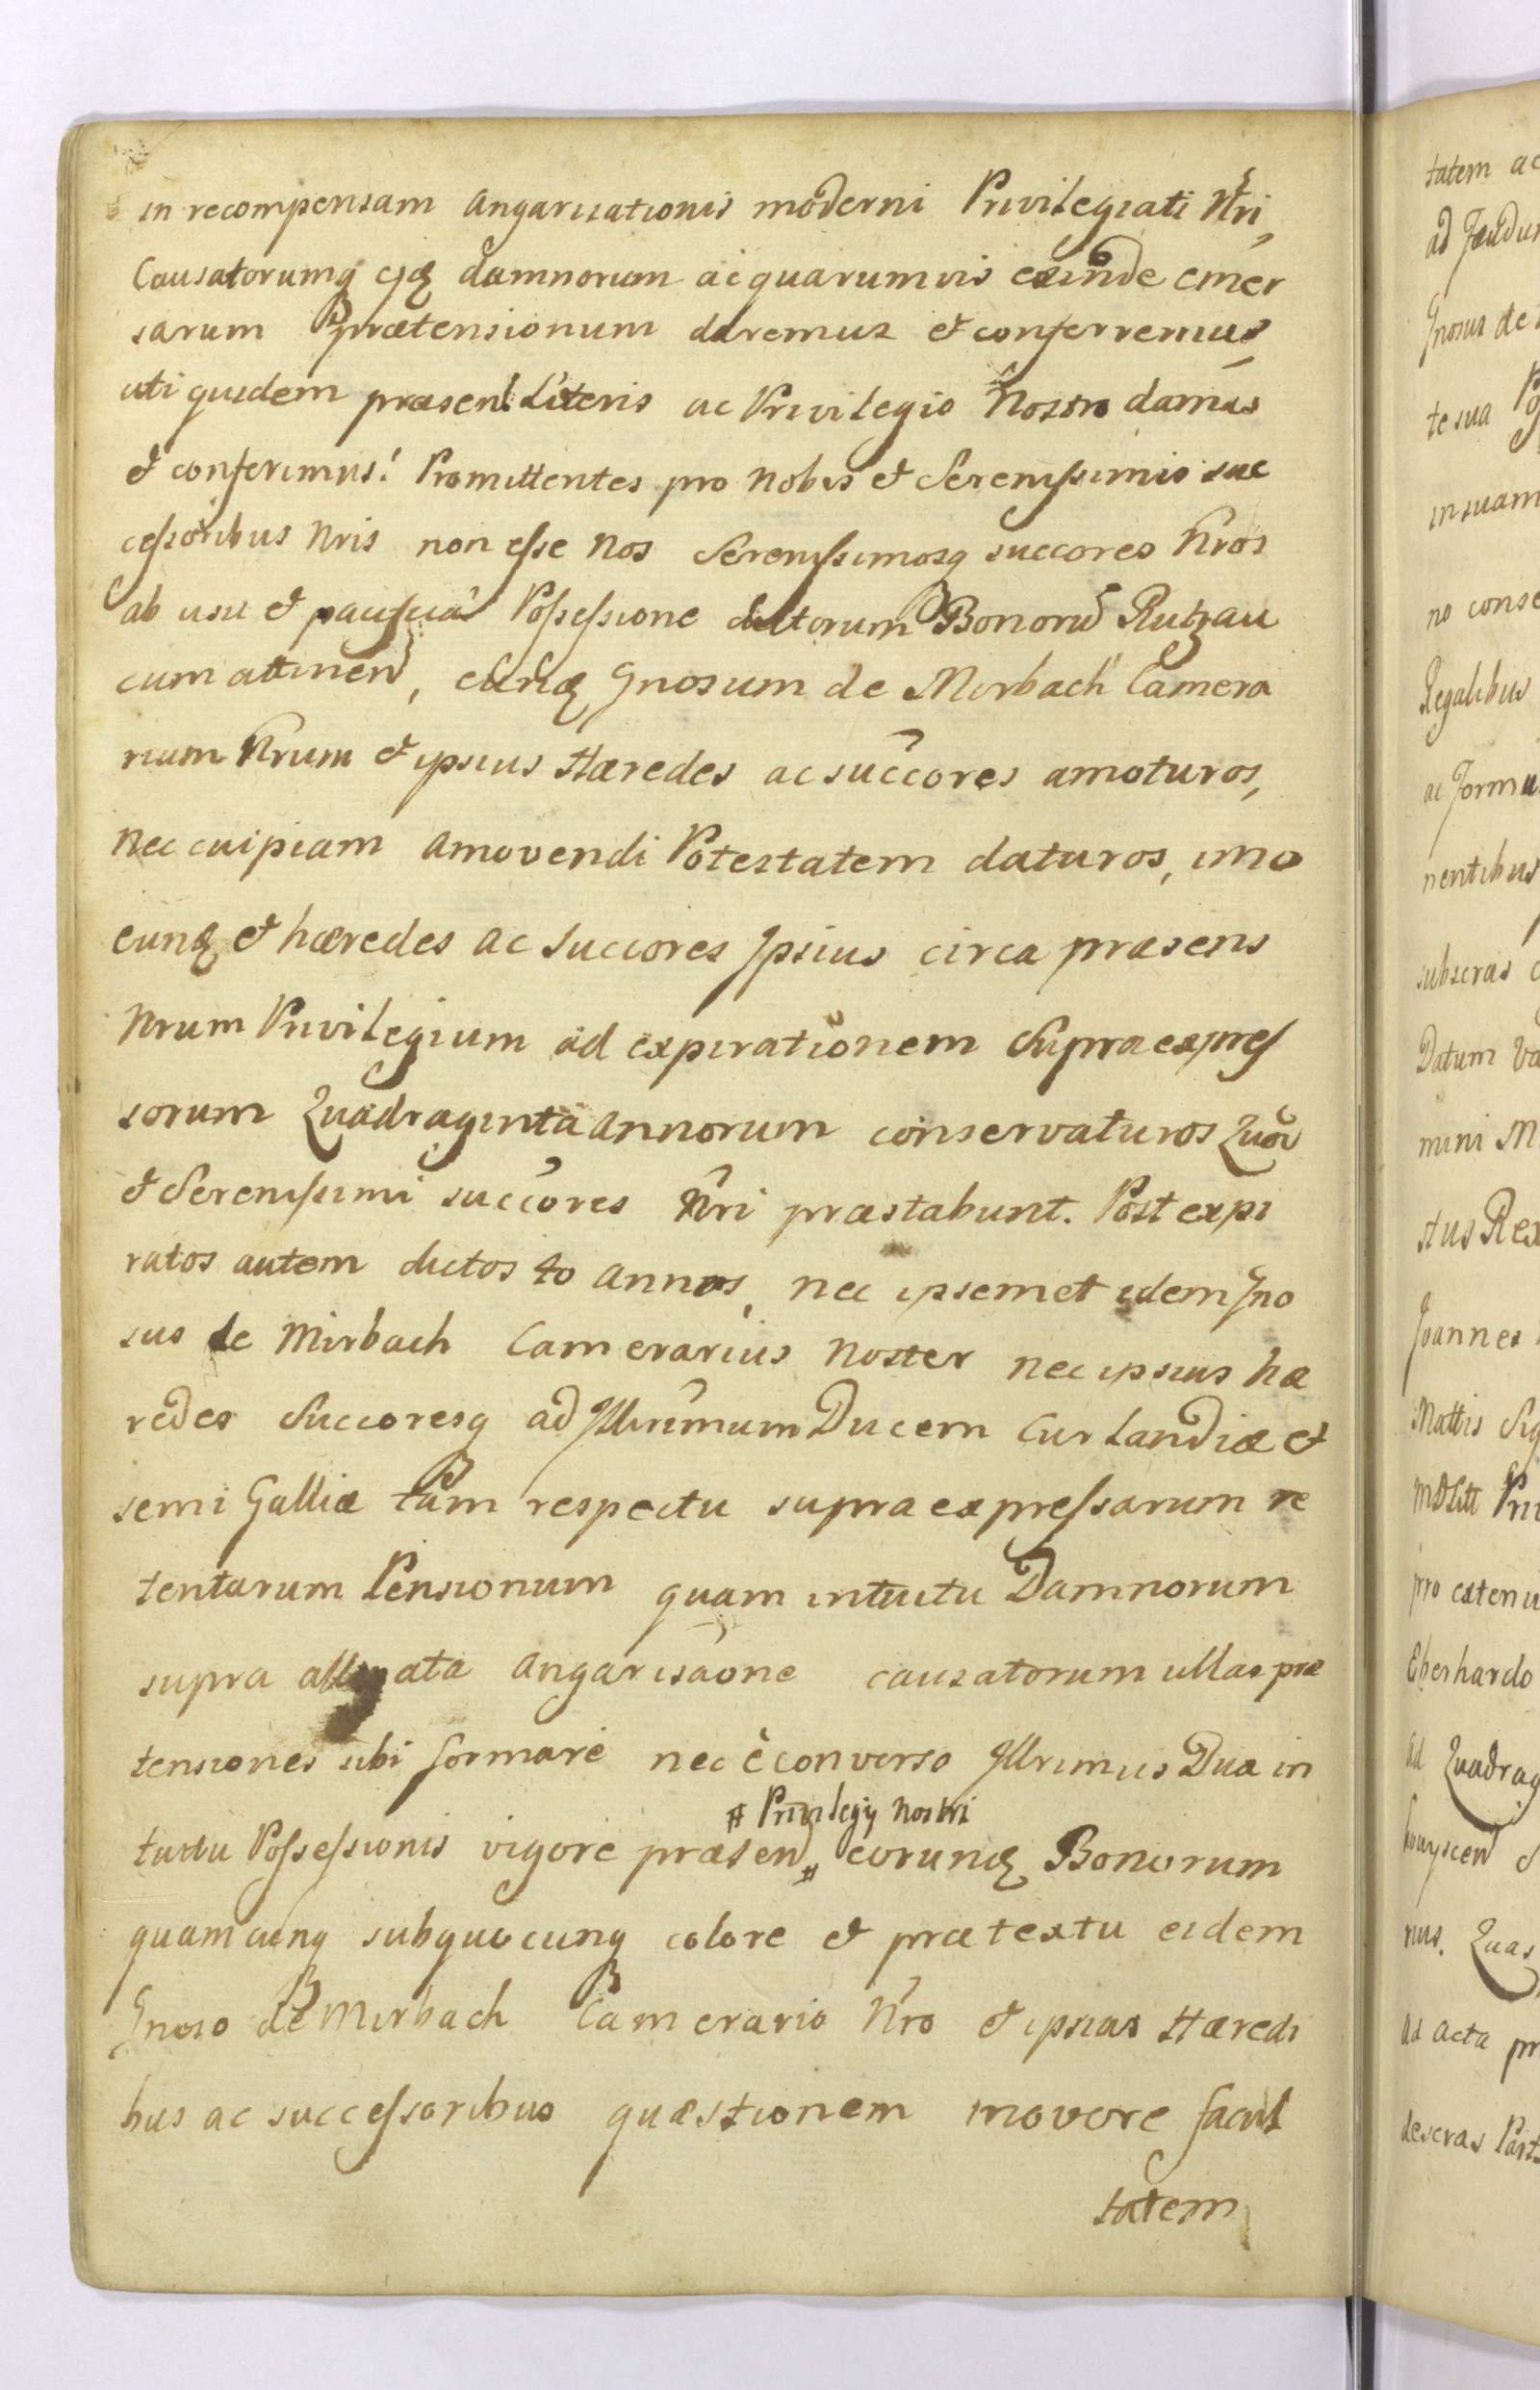 in recompensam angarisationis moderni Privilegiati Nri,
Causatorumq damnorum ac quarumvis exinde emer
sarum Prætensionum daremus et conferremus,
uti quidem præsen. Literis ac Privilegio Nostro damus
et conferimus! Promittentes pro Nobis et Serenissimis suc
cessoribus Nris non esse Nos Serenissimosq succores Nros
ab usu et pacifica Possessione dictorum Bonoru Rutzau
cum attinen, eundq Gnosum de Mirbach Camera
rium Nrum et ipsius Hæredes ac succores amoturos,
nec cuipiam amovendi Potestatem daturos, imo
eunq et hæredes ac succores Ipsius circa præsens
Nrum Privilegium ad expirationem Supra expres
sorum Quadraginta annorum conservaturos Quod
et Serenissimi succores Nri præstabunt. Post expi
ratos autem dictos 40 annos, nec ipsemet idem Gno
sus de Mirbach Camerarius Noster nec ipsius hæ
redes Succoresq ad Illrimum Ducem Curlandiæ et
semi Galliæ tam respectu supra expressarum re
tentarum Pensionum quam intuitu Damnorum
supra allegata angarisaone causatorum ullas præ
tensiones sibi formare nec è converso Illrimus Dux in
# Privilegij Nostri
tuitu Possessionis vigore præsen # eorundq Bonorum
quamcunq sub quocunq colore et prætextu eidem
Gnoso de Mirbach Camerario Nro et ipsius Hæredi
bus ac successoribus quæstionem movere facul
tatem
tatem ac
ad
Gnosus de
te sua
in suam
no conse
Regalibus
ac Formu
nentibus
subscras
Datum
mini M
stus Rex
Joannes
Mattis Sig
Pri
pro exten
Eberhardo
ad Quadrag
rius. Quas
ad acta pr
descras